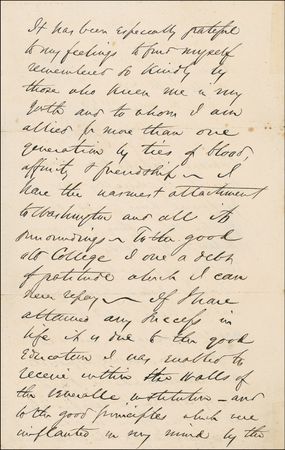 It has been especially grateful
to my feelings to find myself
remembered so kindly by
those who knew me in my
youth and to whom I am
allied for more than one
generation by ties of blood,
affinity & friendship ~ I
have the warmest attachment
to Washington and all its
surroundings ~ To the good
old College I owe a debt
of gratitude which I can
never repay ~ If I have
attained any success in
life it is due to the good
Education I was enabled to
receive within the walls of
the venerable institution - and
to the good principles which were
implanted in my mind by the